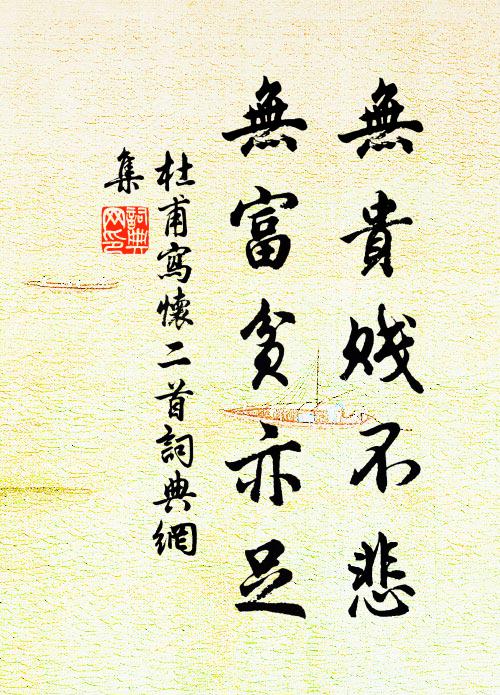 無貴賤不悲
無富貧亦足
杜甫寫懷二首詞典網
集
詞典
网印